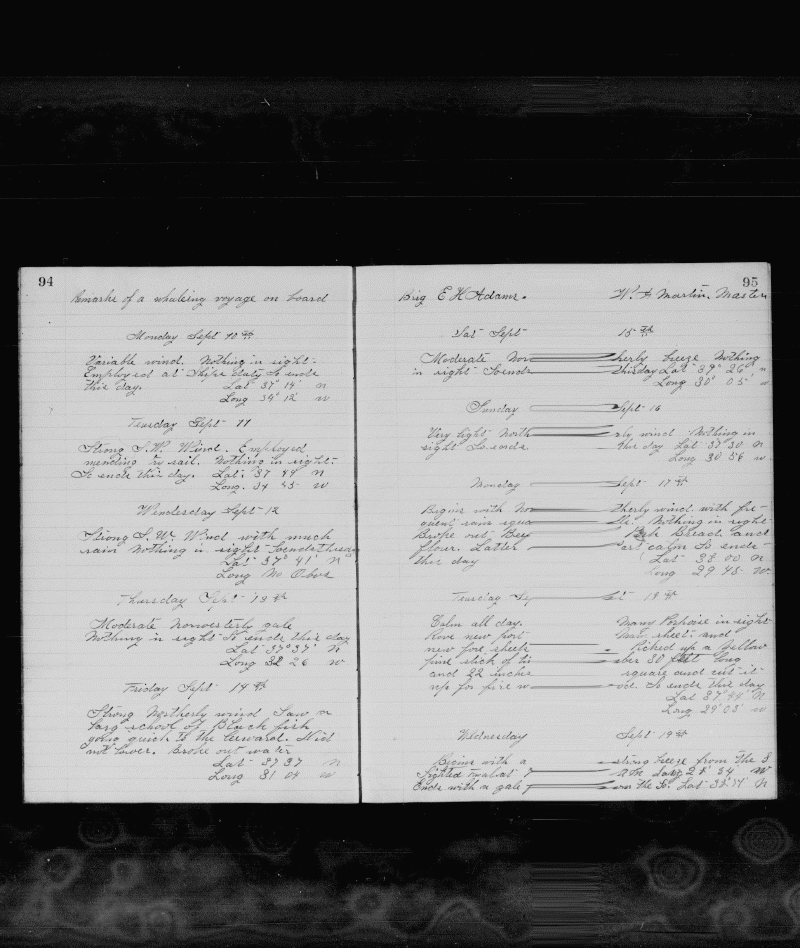 94
Remarks of a whaleing voyage on board
Monday Sept 10th
Variable wind. Nothing in sight.
Employed at Ships duty So ends
this day. Lat 37° 14' N
Long 34° 12' W
Tuesday Sept 11
Strong S.W. Wind. Employed
mending sail. Nothing in sight.
So ends this day. Lat. 37 44 N
Long. 34 45 W
Wendersday Sept 12
Strong S. W. Wind with much
rain Nothing in sight So ends this day
Lat 37° 41' N
Long No Obs
Thursday Sept 13th
Moderate norwesterly gale
Nothing in sight So ends this day
Lat 37° 37' N
Long 32 26 W
Friday Sept 14th
Strong Northerly wind Saw a
larg school of Black fish
going quick to the leeward. Did
not lower. Broke out water
Lat 37 37 N
Long 31 04 W
95
Brig E H Adams. Martin, Master
Sat Sept 15th
Moderate Nor therly breeze Nothing
in sight So ends this day Lat 37° 26' N
Long 30° 05' W
Sunday Sept 16
Very light North erly wind Nothing in
sight So ends this day Lat 37 30 N
Long 30 56 W
Monday Sept 17th
Begins with Nor therly wind with fre-
quent rain squa lls. Nothing in sight
Broke out Beef Pork Bread and
flour. Latter part calm So ends
this day Lat 38 00 N
Long 29 45 W
Tuesday Sept 18th
Calm all day. Many Porpoise in sight
new fore sheets Picked up a yellow
pine stick of ti mber 30 feet long
and 22 inches square and cut it
up for fire w ood. So ends this day
Lat 37 44 N
Long 29° 03' W
Wednesday Sept 19th
Begins with a strong breeze from the S.
Sighted 28° 54 W
Ends with a gale over the So. Lat N